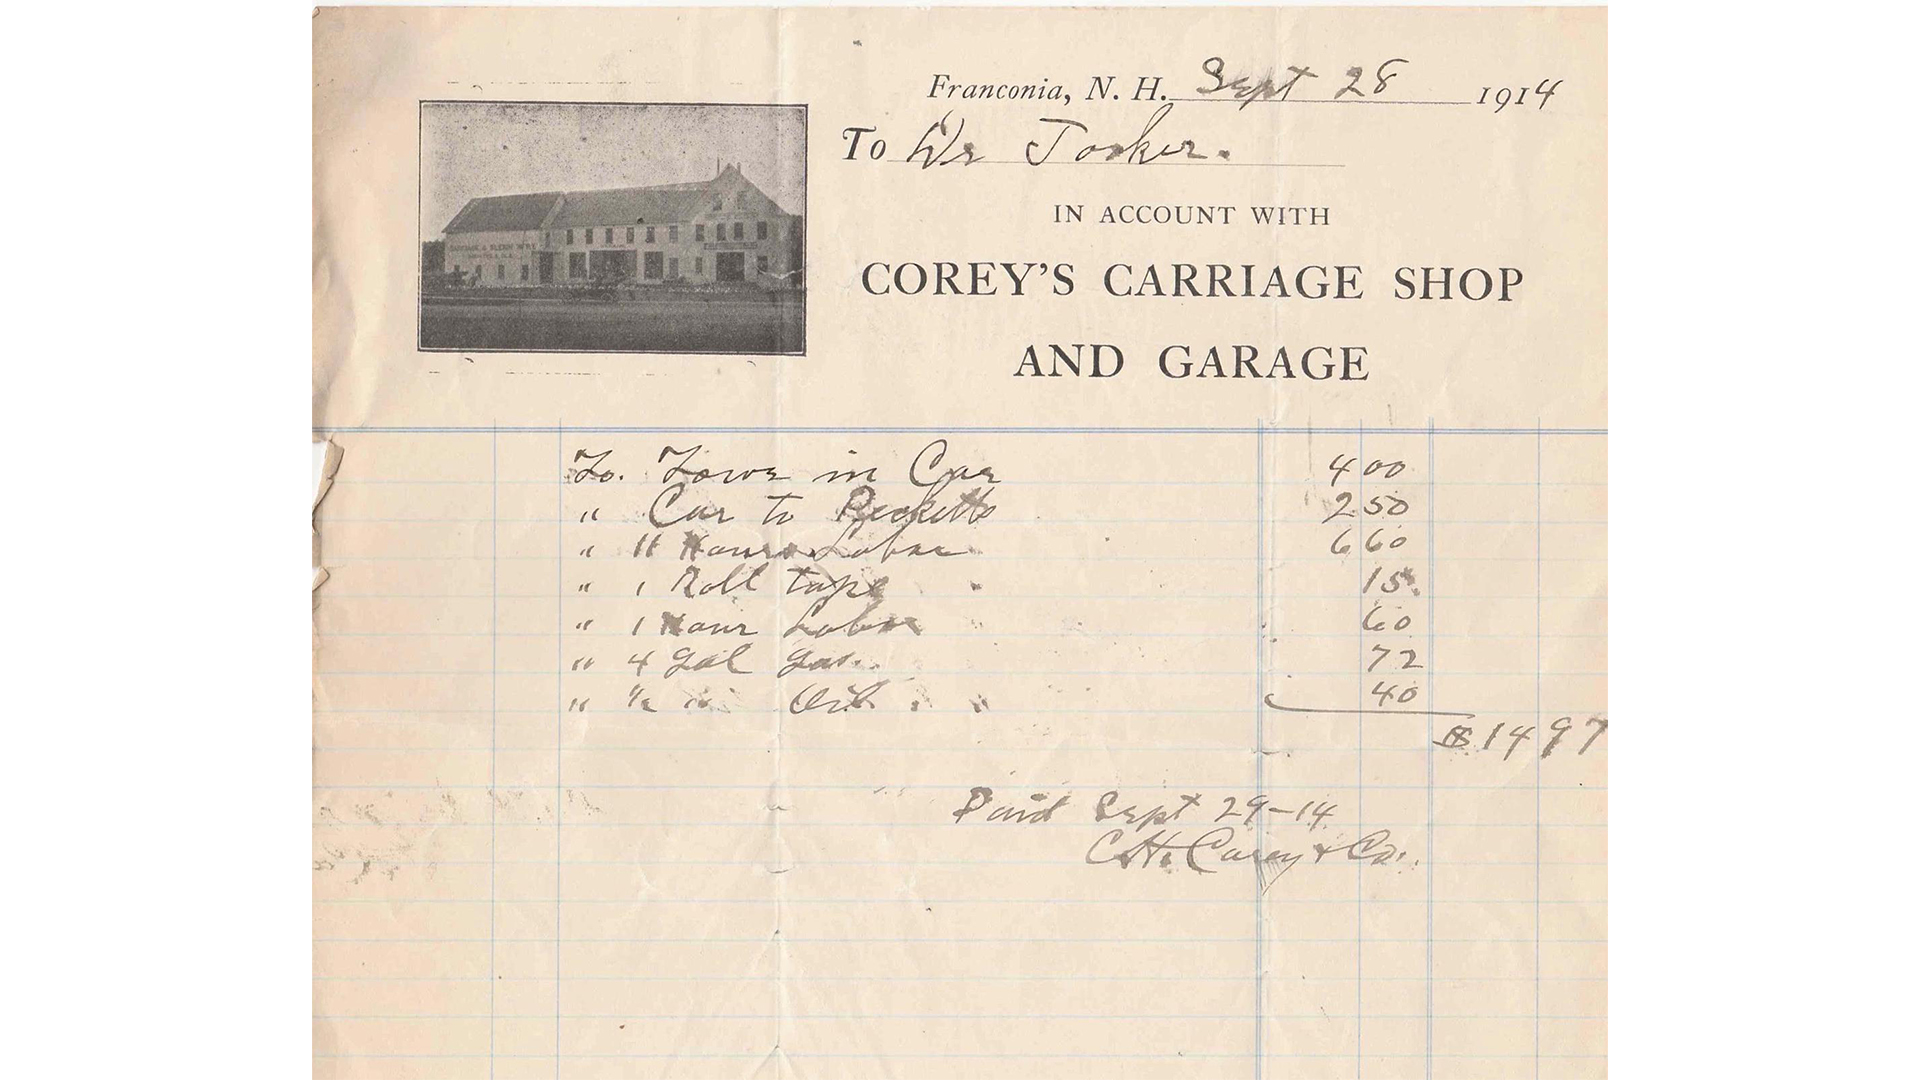 Franconia, N. H. Sept 28 1914
To Dr Tooker.
IN ACCOUNT WITH
COREY'S CARRIAGE SHOP
AND GARAGE
To. Towe in Car 4 00
" Car to Ricketts 2 50
" 11 Hours Labor 6 60
" 1 Roll tape 15
" 1 Hour Labor 60
" 4 Gal Gas. 72
" 1/2 " Oil 40
$14 97
Paid Sept 29-14
C.H. Corey & Co.